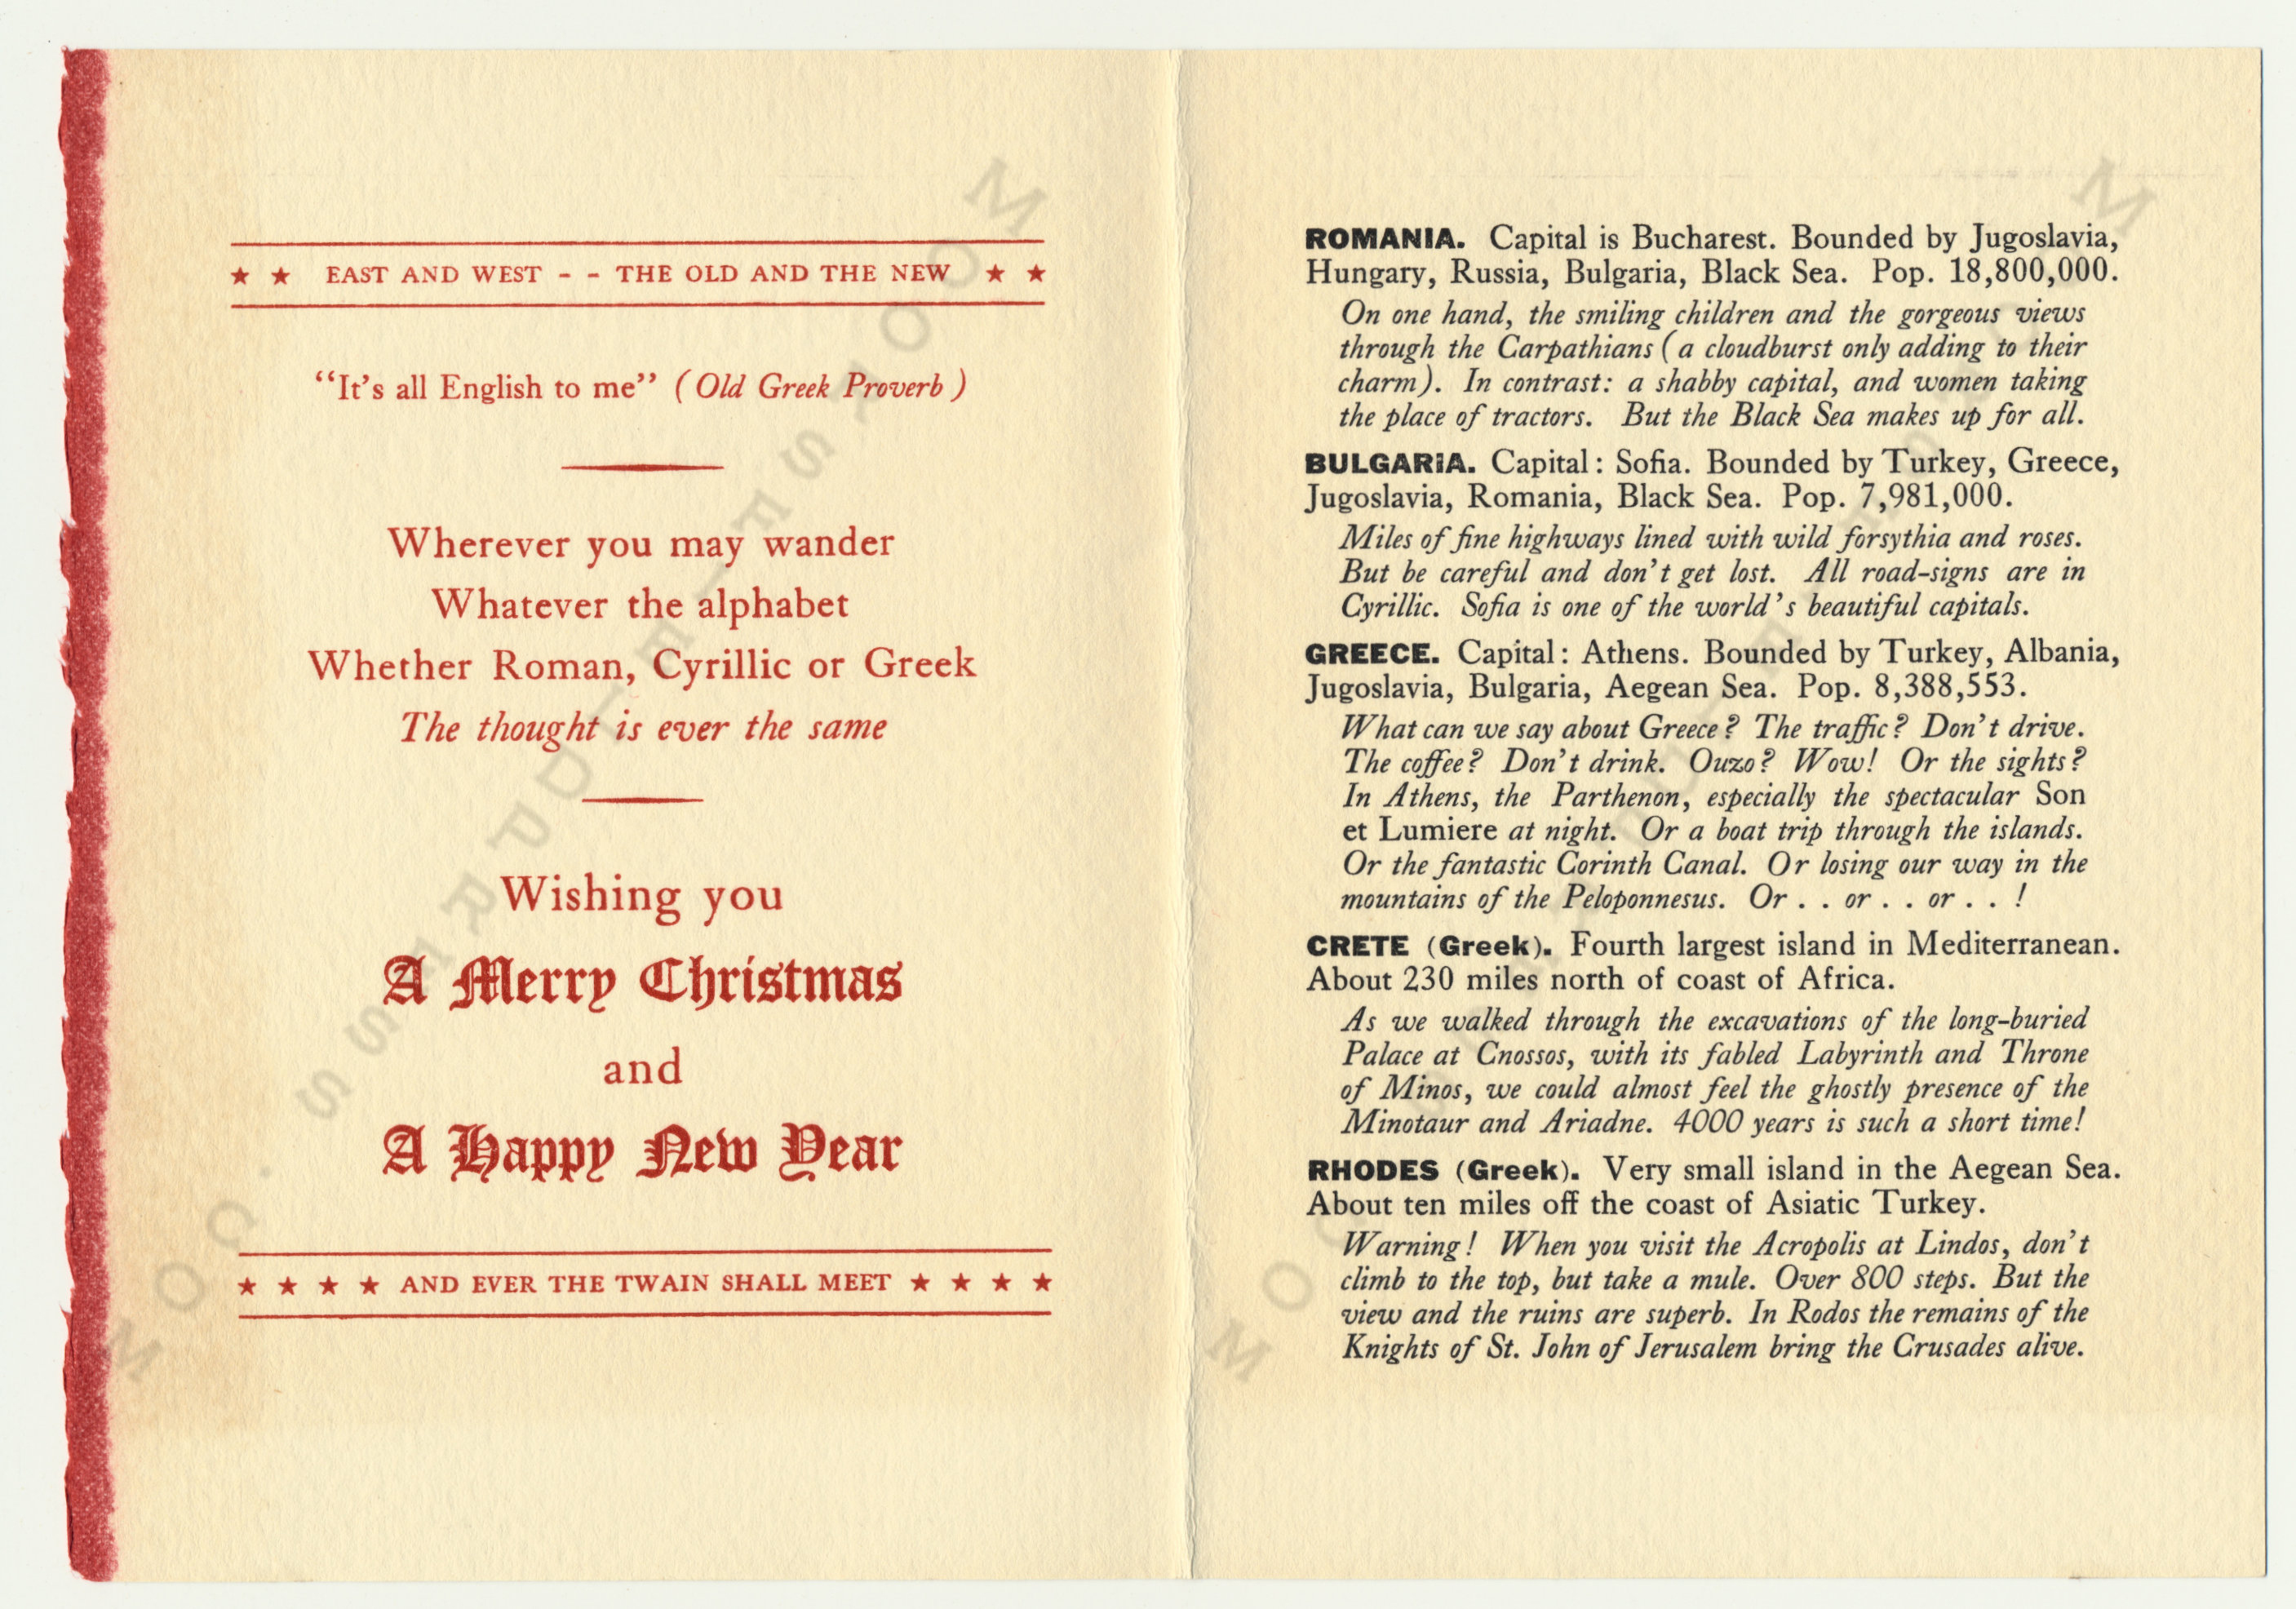 ★ ★ EAST AND WEST - - THE OLD AND THE NEW ★ ★
“It's all English to me” (Old Greek Proverb)
Wherever you may wander
Whatever the alphabet
Whether Roman, Cyrillic or Greek
The thought is ever the same
Wishing you
A Merry Christmas
and
A Happy New Year
★ ★ ★ ★ AND EVER THE TWAIN SHALL MEET ★ ★ ★ ★
ROMANIA. Capital is Bucharest. Bounded by Jugoslavia,
Hungary, Russia, Bulgaria, Black Sea. Pop. 18,800,000.
On one hand, the smiling children and the gorgeous views
through the Carpathians (a cloudburst only adding to their
charm). In contrast: a shabby capital, and women taking
the place of tractors. But the Black Sea makes up for all.
BULGARIA. Capital: Sofia. Bounded by Turkey, Greece,
Jugoslavia, Romania, Black Sea. Pop. 7,981,000.
Miles of fine highways lined with wild forsythia and roses.
But be careful and don't get lost. All road-signs are in
Cyrillic. Sofia is one of the world's beautiful capitals.
GREECE. Capital: Athens. Bounded by Turkey, Albania,
Jugoslavia, Bulgaria, Aegean Sea. Pop. 8,388,553.
What can we say about Greece? The traffic? Don't drive.
The coffee? Don't drink. Ouzo? Wow! Or the sights?
In Athens, the Parthenon, especially the spectacular Son
et Lumiere at night. Or a boat trip through the islands.
Or the fantastic Corinth Canal. Or losing our way in the
mountains of the Peloponnesus. Or . . or . . or . . !
CRETE (Greek). Fourth largest island in Mediterranean.
About 230 miles north of coast of Africa.
As we walked through the excavations of the long-buried
Palace at Cnossos, with its fabled Labyrinth and Throne
of Minos, we could almost feel the ghostly presence of the
Minotaur and Ariadne. 4000 years is such a short time!
RHODES (Greek). Very small island in the Aegean Sea.
About ten miles off the coast of Asiatic Turkey.
Warning! When you visit the Acropolis at Lindos, don't
climb to the top, but take a mule. Over 800 steps. But the
view and the ruins are superb. In Rodos the remains of the
Knights of St. John of Jerusalem bring the Crusades alive.